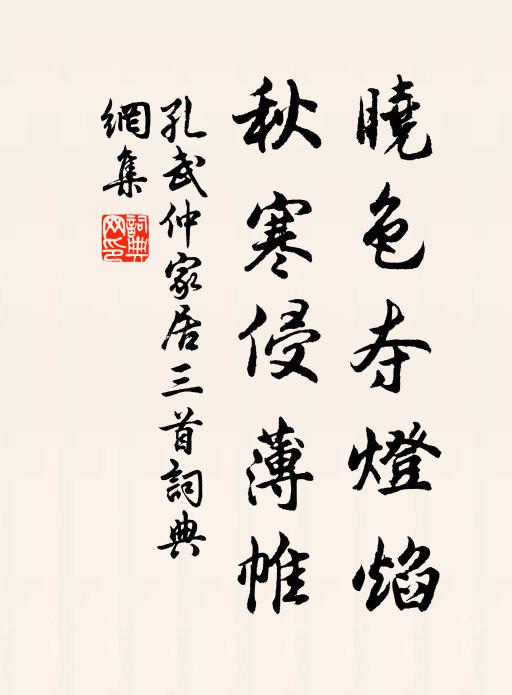 曉色夺燈焰
秋寒侵薄帷
孔武仲家居三首詞典
網集
詞典
网印